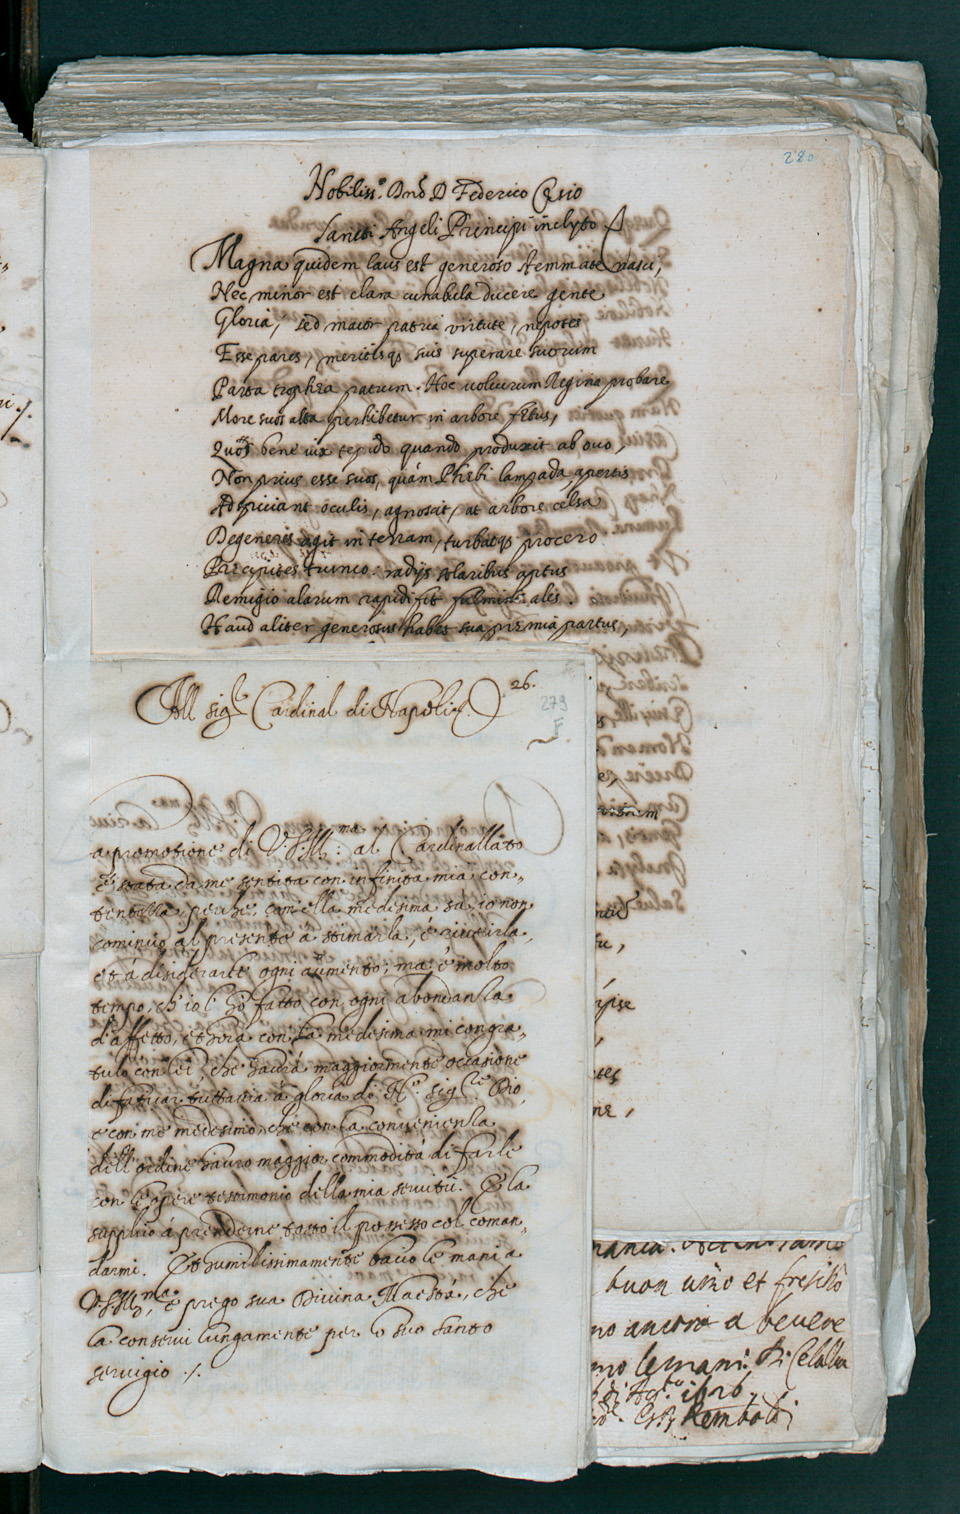 280
Nobiliss.º Dnõ D Federico Cęsio
Sancti Angeli Principi inclyto
Magna quidem laus est generoso stemmate nasci,
Nec minor est clara cunabula ducere gente
Gloria, sed maior patria virtute, nepotes
Esse pares, meritisqȝ suis superare suorum
Parta trophęa patrum. Hoc volucrum Regina probare
More suos alta perhibetur in arbore fętus,
Quos bene vix tepido quando produxit ab ouo,
Non prius esse suos, quám Phębi lampada apertis
Adspiciant oculis, agnoscit, at arbore celsa
Degeneres agit in terram, turbatqȝ procero
Pręcipites trunco: radijs solaribus aptus
Remigio alarum rapidi fit fulminis ales.
Haud aliter generosus habes sua pręmia partus,
All sig.r Cardinal di Napoli.
26.
279
F
a promotione di V.S. Ill.ma al Cardinallato
é stata da me sentita con infinita mia con-
tentezza perche, com'ella medesima sá, io non
cominciò al presente á stimarla, é riuerirla,
et á disiderarle ogni aumento; ma é molto
tempo, ch'io l'hó fatto con ogni abondanza
d'affetto, et hora con la medesima mi congra-
tulo con lei, che haurá maggiormente occasione
di fatticar tuttauia á gloria di N.º sig.re Dio,
e con me medesimo, che con la conuenienza
dell'ordine hauro maggior commodità di farle
con l'opere testimonio della mia seruitù. E la
supplico á prenderne tosto il possesso col coman-
darmi. Et humilissimamente bacio le mani a
V.S. Ill.ma, é prego sua Diuina Maestá, che
la conserui lungamente per lo suo santo
seruigio ./.
buon uino et freschö
no ancora a beuere
mo le mani. Di
1626